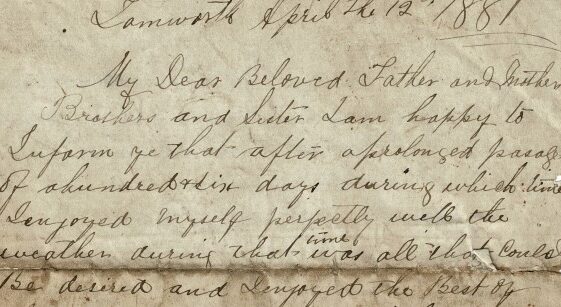 Tamworth April the 12th 1881
My Dear Beloved Father and Mother
Brothers and Sister I am happy to
Inform ye that after a prolonged pasage
Of a hundred & six days during which time
I enjoyed myself perfectly well the
weather during that time was all that Could
Be desired and I enjoyed the Best of